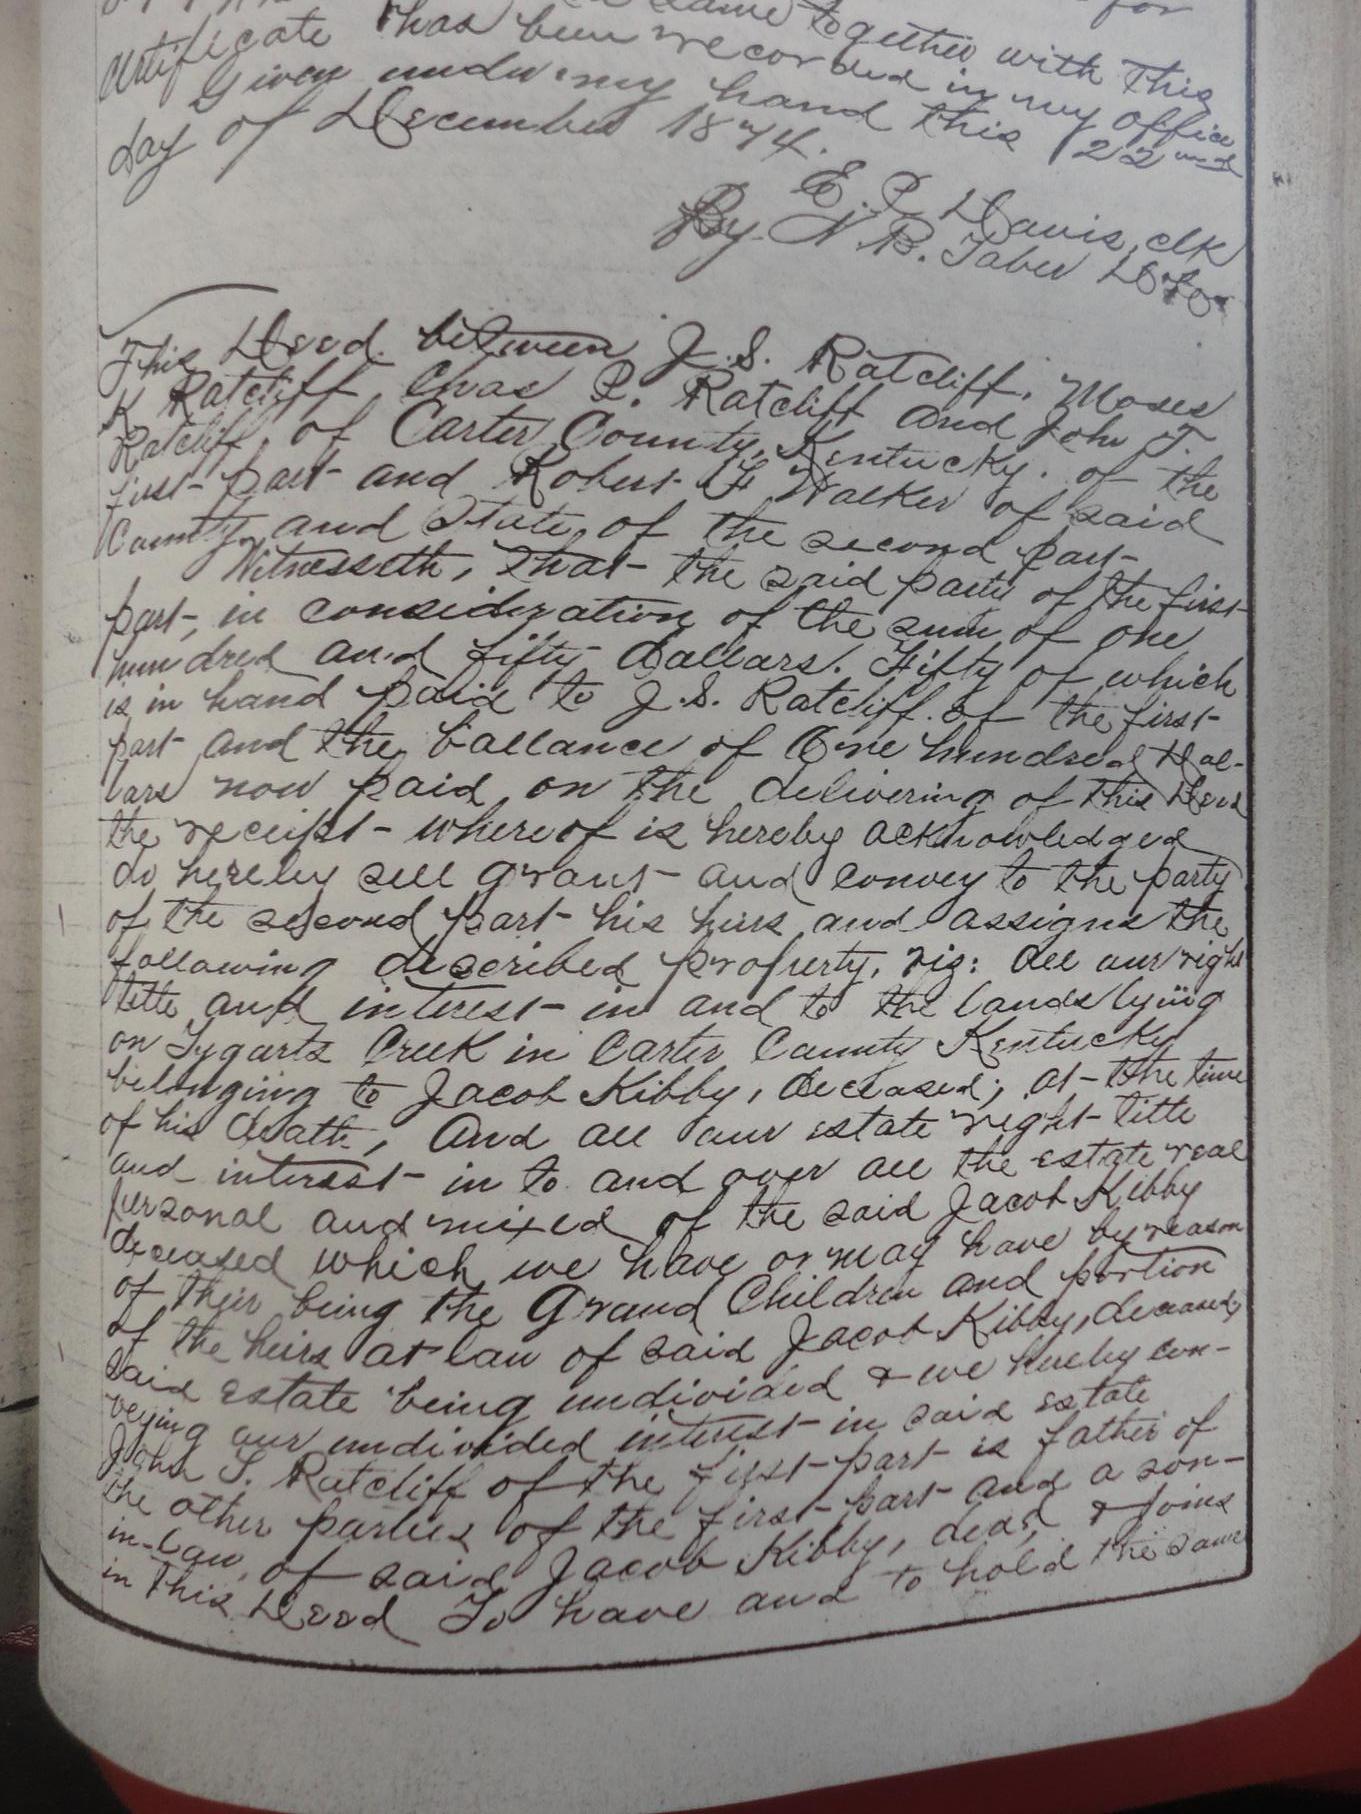 same together with this
Certificate has been recorded in my office
Given under my hand this 22nd
day of December 1874.
E. P. Davis, clk
By N. B. Taber D.C.
This Deed between J. S. Ratcliff, Moses
K Ratcliff, Chas P. Ratcliff and John T.
Ratcliff, of Carter County, Kentucky. of the
first part and Robert F Walker of said
County and State, of the second part
Witnesseth, That the said party of the first
part, in consideration of the sum of one
hundred and fifty dollars. Fifty of which
is in hand paid to J. S. Ratcliff. of the first
part and the ballance of One hundred Dol-
lars now paid on the delivering of this Deed
the receipt whereof is hereby acknowledged
do hereby sell grant and convey to the party
of the second part his heirs and assigns the
following described property, viz: All our right
title and interest in and to the lands lying
on Tygarts Creek in Carter County Kentucky
belonging to Jacob Kibby, deceased; at the time
of his death, And all our estate right title
and interest in to and over all the estate real
personal and mixed of the said Jacob Kibby
deceased which we have or may have by reason
of their being the Grand Children and portion
of the heirs at law of said Jacob Kibby, deceased,
said estate being undivided & we hereby con-
veying our undivided interest in said estate
John S. Ratcliff of the first part is father of
the other parties of the first part and a son-
in-law, of said Jacob Kibby, dead, & joins
in this Deed To have and to hold the same